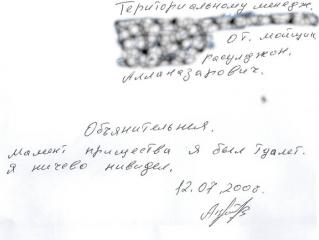 Териториальному менедж.
От. мойщик
расулджон.
Аллаказарович.
Обьянительная.
мамент прищества я был Туалет.
я ничево нивидел.
12.07.200